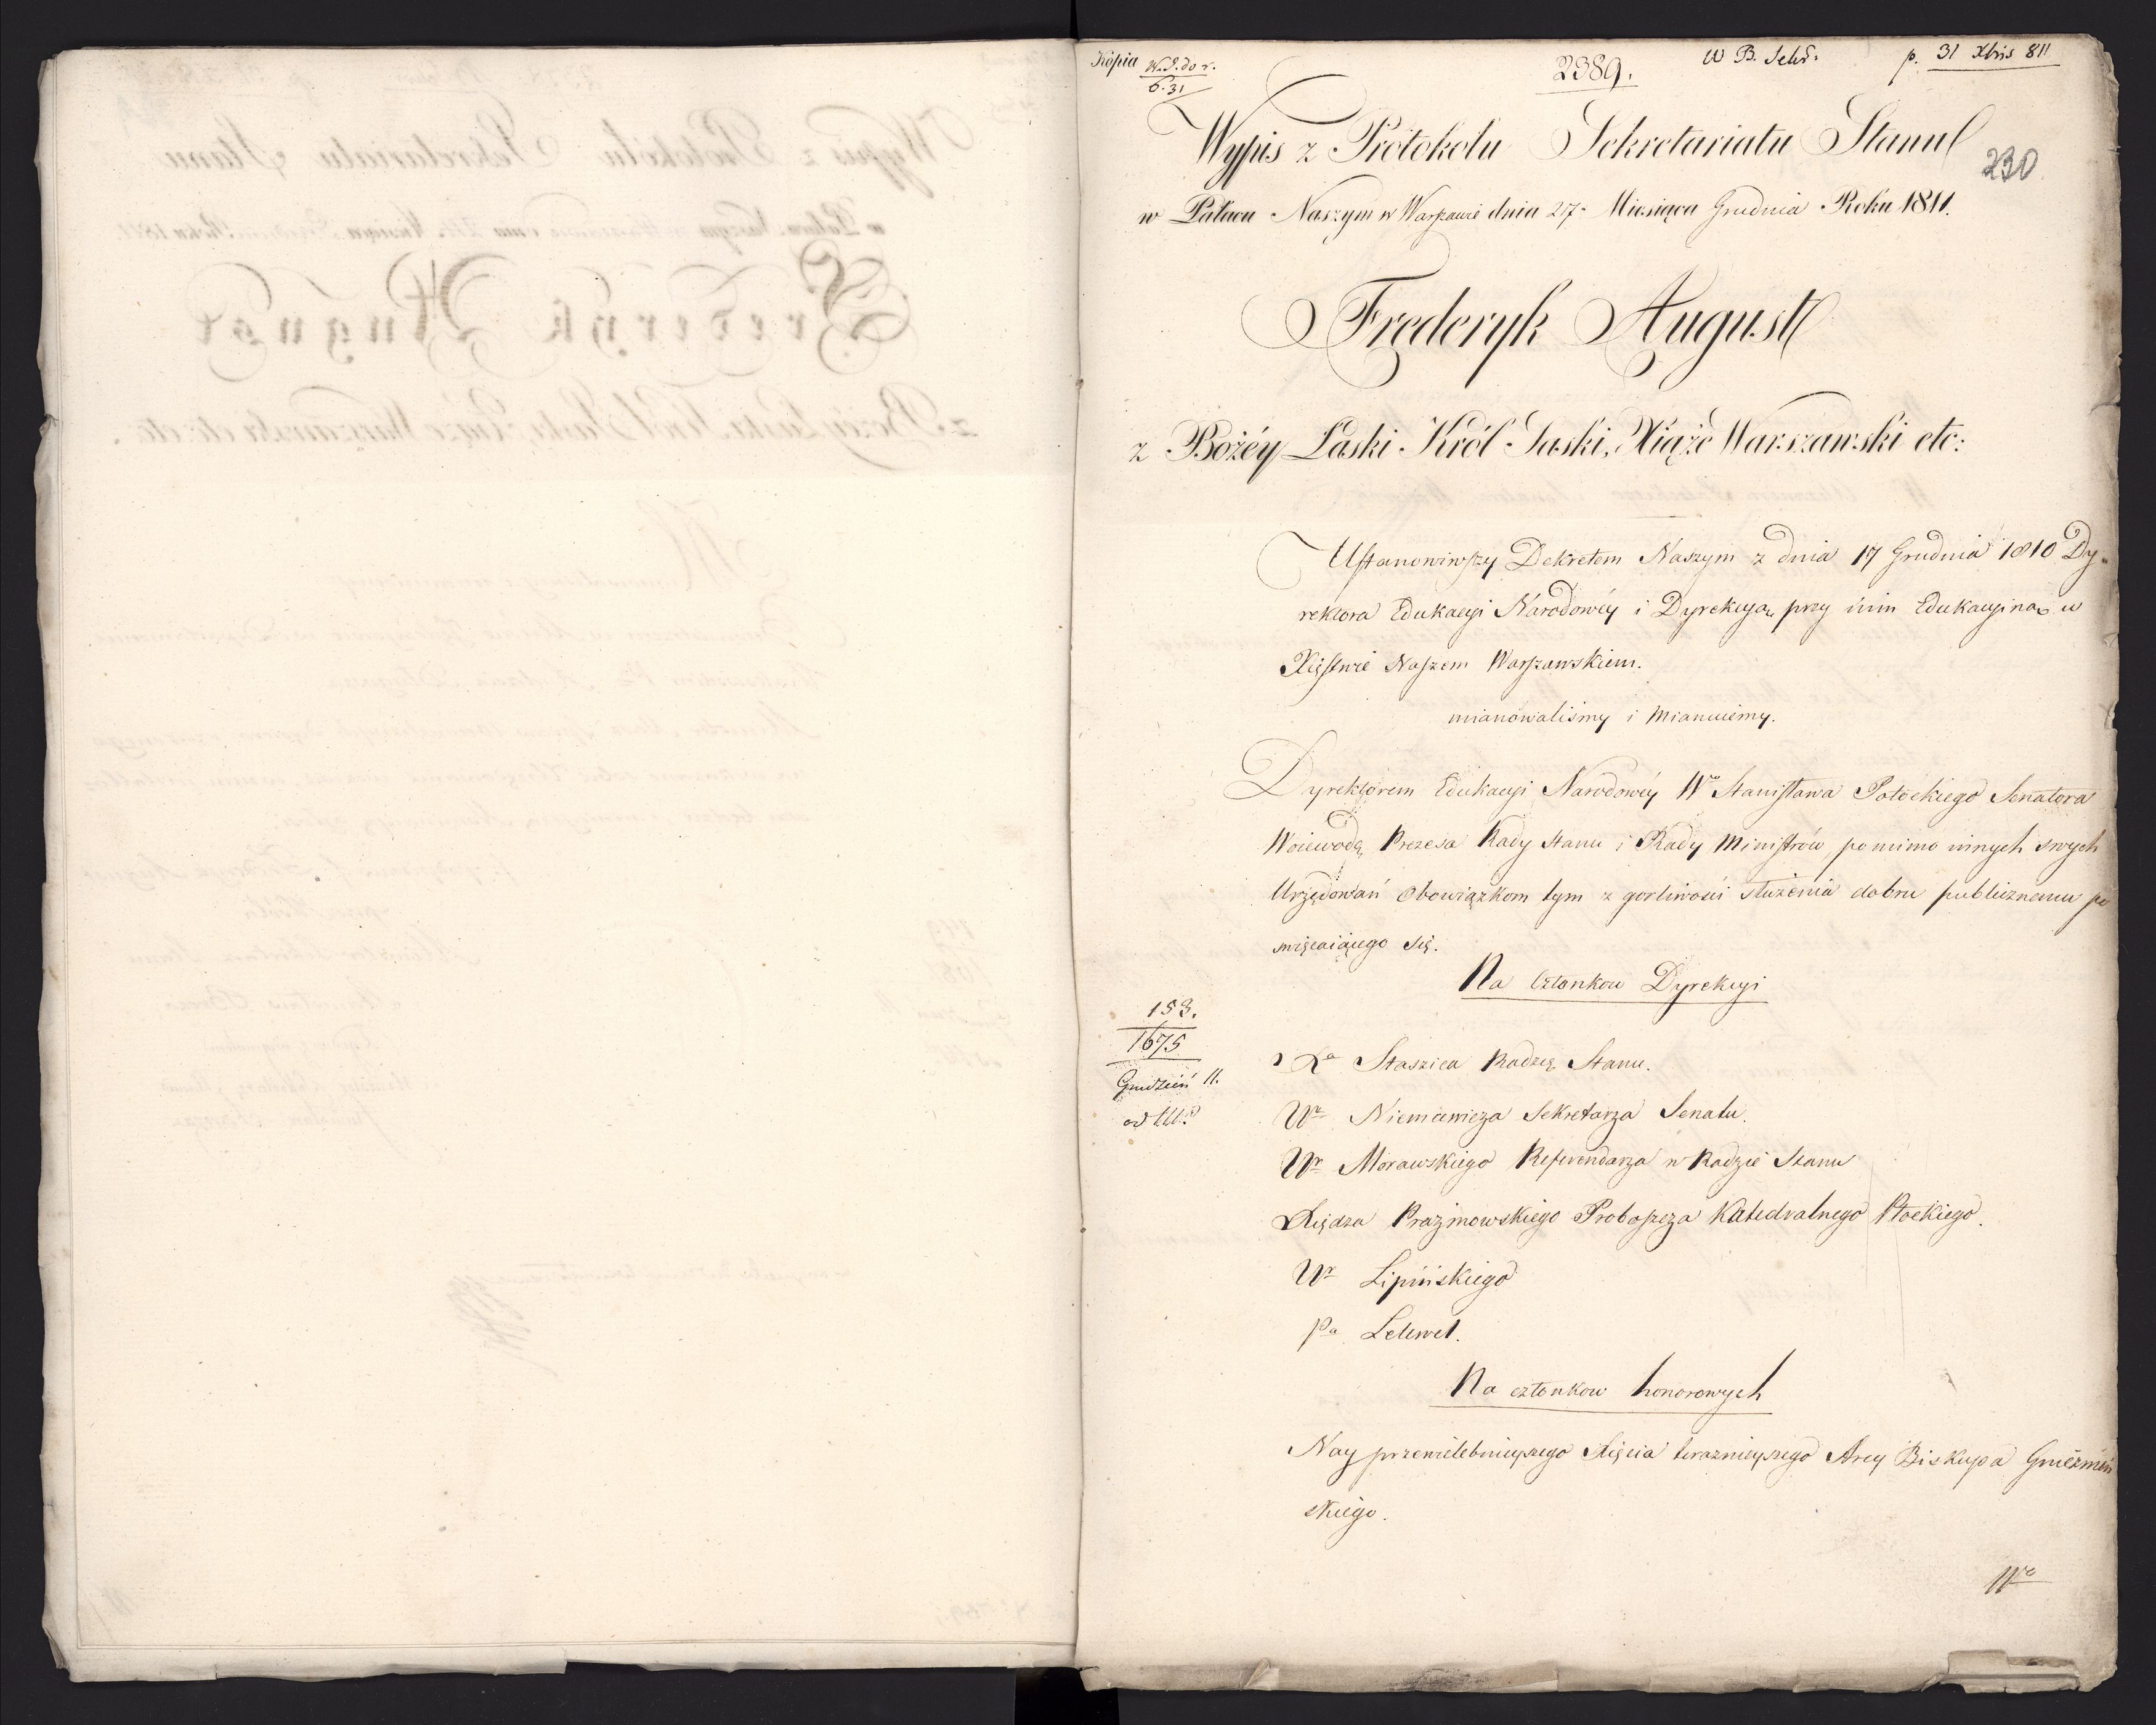 Kopia
2389.
p. 31 Xbris 811
Wypis z Protokołu Sekretariatu Stanu
230
w Pałacu Naszym w Warszawie dnia 27. Miesiąca Grudnia Roku 1811.
Frederyk August
z Bożéy Łaski Król Saski, Xiąże Warszawski etc:
Ustanowiwszy Dekretem Naszym z dnia 17 Grudnia 1810 Dy-
rektora Edukacyi Narodowéy i Dyrekcyą przy nim Edukacyiną w
Xięstwie Naszem Warszawskiem.
mianowaliśmy i Mianuiemy.
Dyrektorem Edukacyi Narodowéy Wo Stanisława Potockiego Senatora
Woiewodę, Prezesa Rady Stanu i Rady Ministrów, pomimo innych swych
Urzędowań Obowiązkom tym z gorliwości służenia dobru publicznemu po
swięcaiącego się.
Na Członkow Dyrekcyi
153.
1675
Grudzień 11.
Xa Staszica Radzcę Stanu.
Wo Niemcewicza Sekretarza Senatu.
Wo Morawskiego Referendarza w Radzie Stanu
Xiędza Prazmowskiego Proboszcza Katedralnego Płockiego.
Wo Lipińskiego
Pa Lelewel.
Na członkow honorowych
Nay przewielebnieyszego Xięcia teraznieyszego Arcy Biskupa Gnieźnień
skiego.
Wo